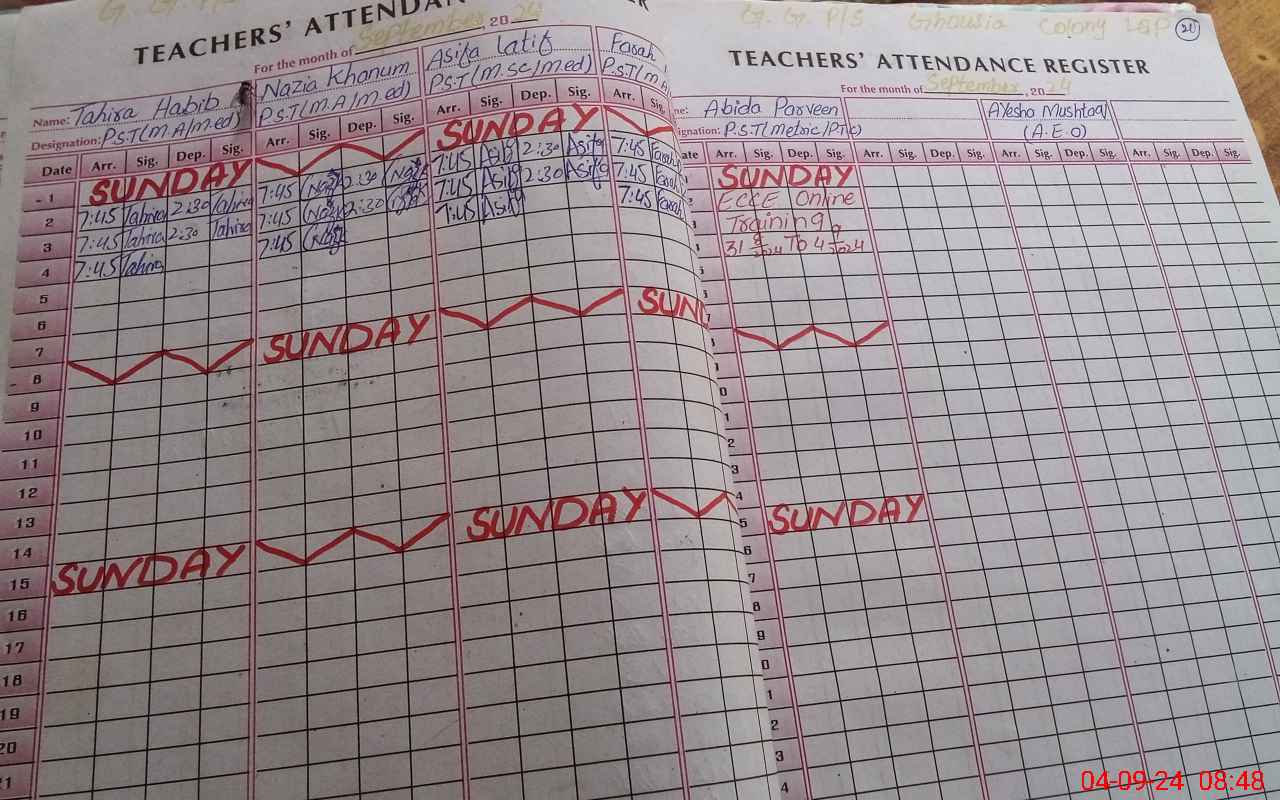 G. G. P/S
TEACHERS' ATTENDAN
For the month of September, 2024
Name: Tahira Habib
Nazia Khanum
Asifa Latif
Farah
Designation: P.S.T(M.A/M.ed)
P.S.T(M.A/M.ed)
P.S.T(M.SC/M.ed)
P.S.T(M.A
Date Arr. Sig. Dep. Sig. Arr. Sig. Dep. Sig. Arr. Sig. Dep. Sig. Arr. Sig.
1 SUNDAY SUNDAY
2 7:45 Tahira 2:30 Tahira 7:45 Naz 2:30 Naz 7:45 Asifa 2:30 Asifa 7:45 Farah
3 7:45 Tahira 2:30 Tahira 7:45 Naz 2:30 7:45 Asifa 2:30 Asifa 7:45 Farah
4 7:45 Tahira 7:45 Naz 7:45 Asifa 7:45 Farah
5
6
7
8 SUNDAY SUND
9
10
11
12
13
14
15 SUNDAY SUNDAY
16
17
18
19
20
21
G. G. P/S Ghousia Colony LGP 21
TEACHERS' ATTENDANCE REGISTER
For the month of September, 2024
me: Abida Parveen
Ayesha Mushtaq
signation: P.S.T(metric/P.T.C)
(A.E.O)
ate Arr. Sig. Dep. Sig. Arr. Sig. Dep. Sig. Arr. Sig. Dep. Sig. Arr. Sig. Dep. Sig.
SUNDAY
ECCE Online
Training
31 8 2024 To 4 9 2024
0
1
2
3
4
5 SUNDAY
6
7
8
9
0
1
2
3
4
04-09-24 08:48